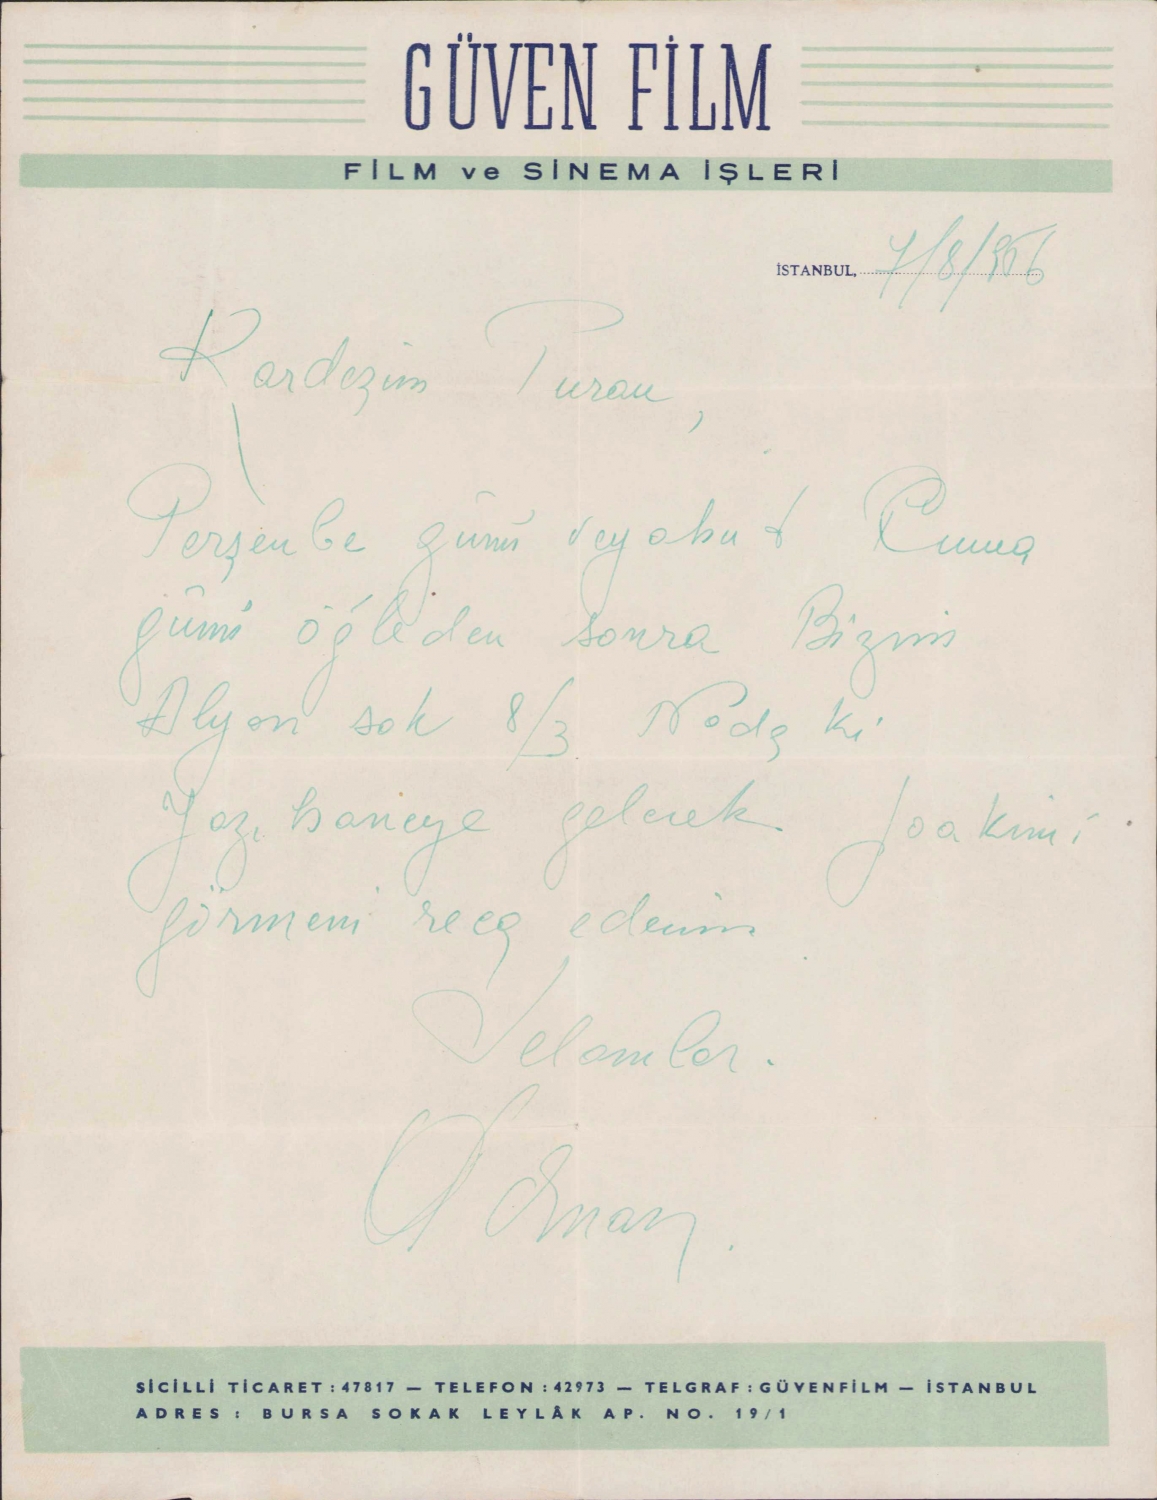 GÜVEN FİLM
FİLM ve SİNEMA İŞLERİ
İSTANBUL, 7/8/956
Kardeşim Turan,
Perşenbe günü veyahut Cuma
günü öğleden sonra Bizim
Alyon sok 8/3 Nodaki
Yazıhaneye gelerek Joakimi
görmeni reca ederim.
Selamlar.
Adnan.
SİCİLLİ TİCARET : 47817 — TELEFON : 42973 — TELGRAF : GÜVENFİLM — İSTANBUL
ADRES : BURSA SOKAK LEYLÂK AP. NO. 19/1